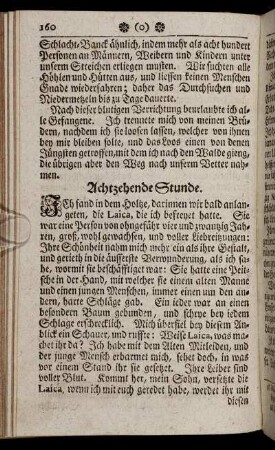 160 ❁ (o) ❁
Schlacht-Banck ähnlich, indem mehr als acht hundert
Personen an Männern, Weibern und Kindern unter
unserm Streichen erliegen musten. Wir suchten alle
Höhlen und Hütten aus, und liessen keinen Menschen
Gnade wiederfahren; daher das Durchsuchen und
Niedermetzeln bis zu Tage dauerte.
Nach dieser blutigen Verrichtung beurlaubte ich al-
le Gefangene. Ich trennete mich von meinen Brü-
dern, nachdem ich sie loosen lassen, welcher von ihnen
bey mir bleiben solte, und das Loos einen von denen
Jüngsten getroffen, mit dem ich nach den Walde gieng,
die übrigen aber den Weg nach unserm Vetter nah-
men.
Achtzehende Stunde.
Ich fand in dem Holtze, darinnen wir bald anlan-
geten, die Laica, die ich befreyet hatte. Sie
war eine Person von ohngefähr vier und zwantzig Jah-
ren, groß, wohl gewachsen, und voller Liebreitzungen:
Ihre Schönheit nahm mich mehr ein als ihre Gestalt,
und gerieth in die äusserste Verwunderung, als ich sa-
he, wormit sie beschäfftiget war: Sie hatte eine Peit-
sche in der Hand, mit welcher sie einem alten Manne
und einen jungen Menschen, immer einen um den an-
dern, harte Schläge gab. Ein ieder war an einen
besondern Baum gebunden, und schrye bey iedem
Schlage erschrecklich. Mich überfiel bey diesem An-
blick ein Schauer, und ruffte: Weise Laica, was ma-
chet ihr da? Ich habe mit dem Alten Mitleiden, und
der junge Mensch erbarmet mich, sehet doch, in was
vor einem Stand ihr sie gesetzt. Ihre Leiber sind
voller Blut. Kommt her, mein Sohn, versetzte die
Laica, wenn ich mit euch geredet habe, werdet ihr mit
diesen